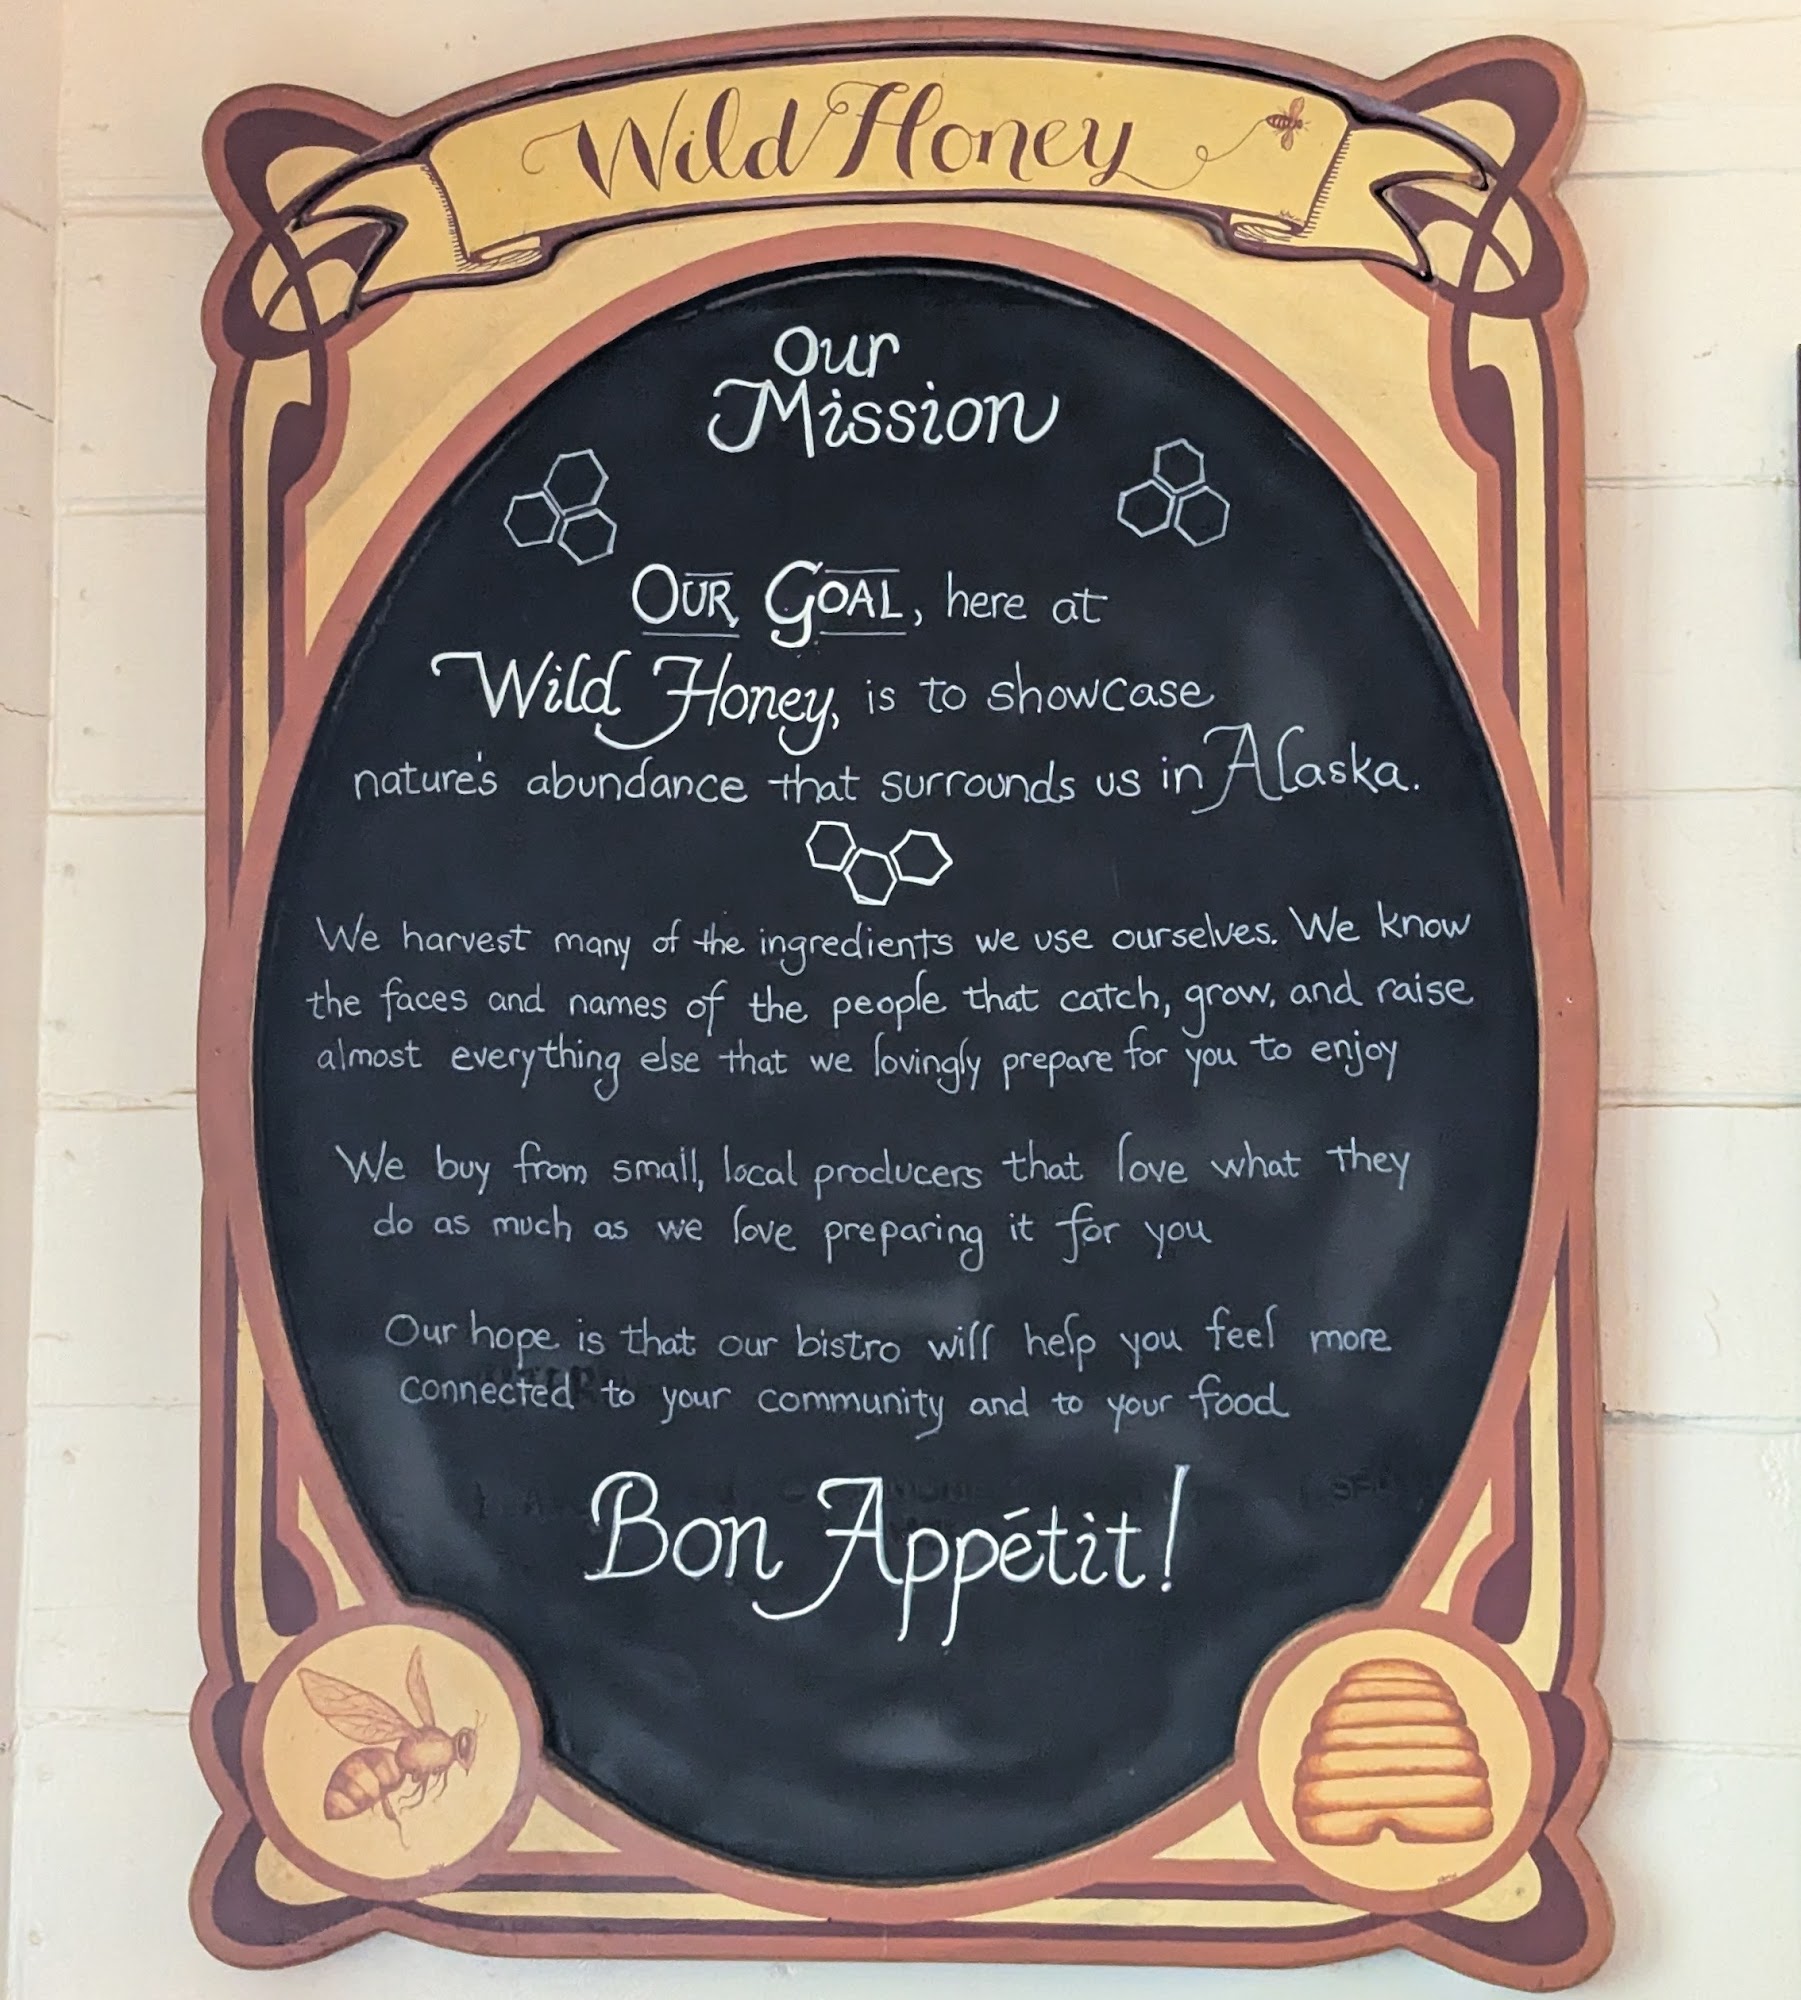 Wild Honey
Our
Mission
OUR GOAL, here at
Wild Honey, is to showcase
nature's abundance that surrounds us in Alaska.
We harvest many of the ingredients we use ourselves. We know
the faces and names of the people that catch, grow, and raise
almost everything else that we lovingly prepare for you to enjoy
We buy from small, local producers that love what they
do as much as we love preparing it for you
Our hope is that our bistro will help you feel more
connected to your community and to your food
Bon Appétit!